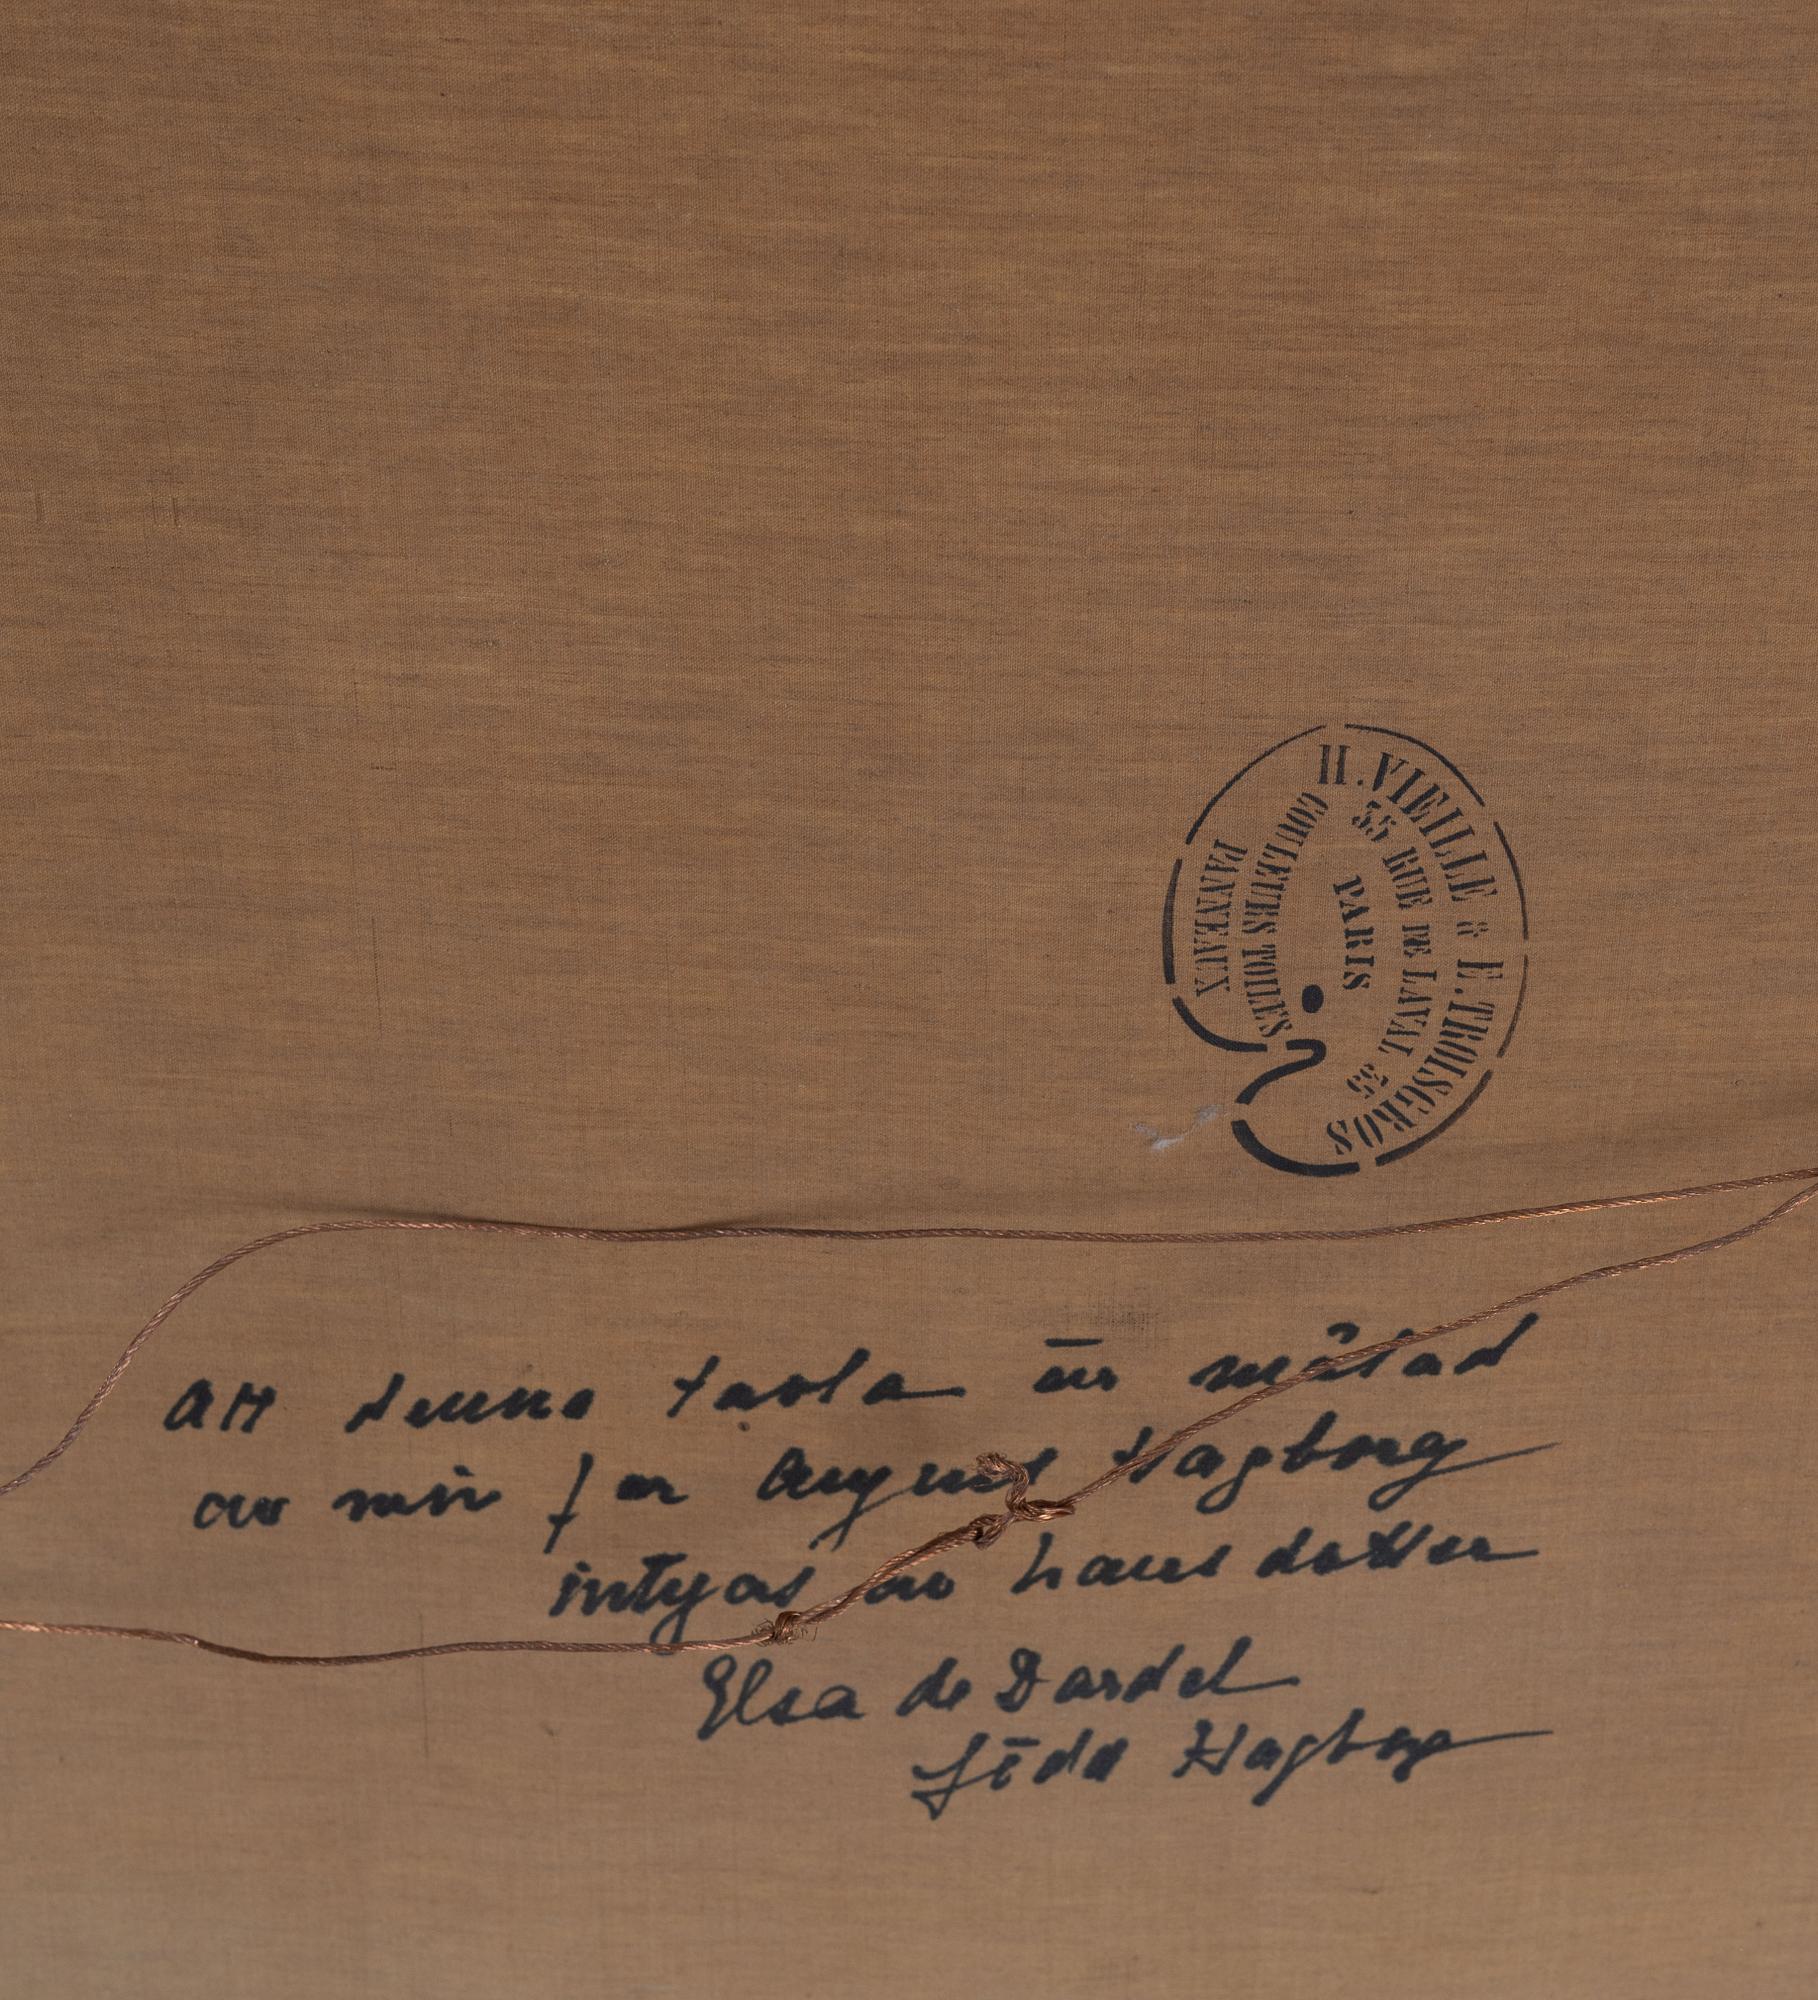 H. VIEILLE & E. TROISGROS
35 RUE DE LAVAL 35
PARIS
COULEURS TOILES
PANNEAUX
Att denna tavla är målad
av min far August Hagborg
intygas av hans dotter
Elsa de Dardel
född Hagborg